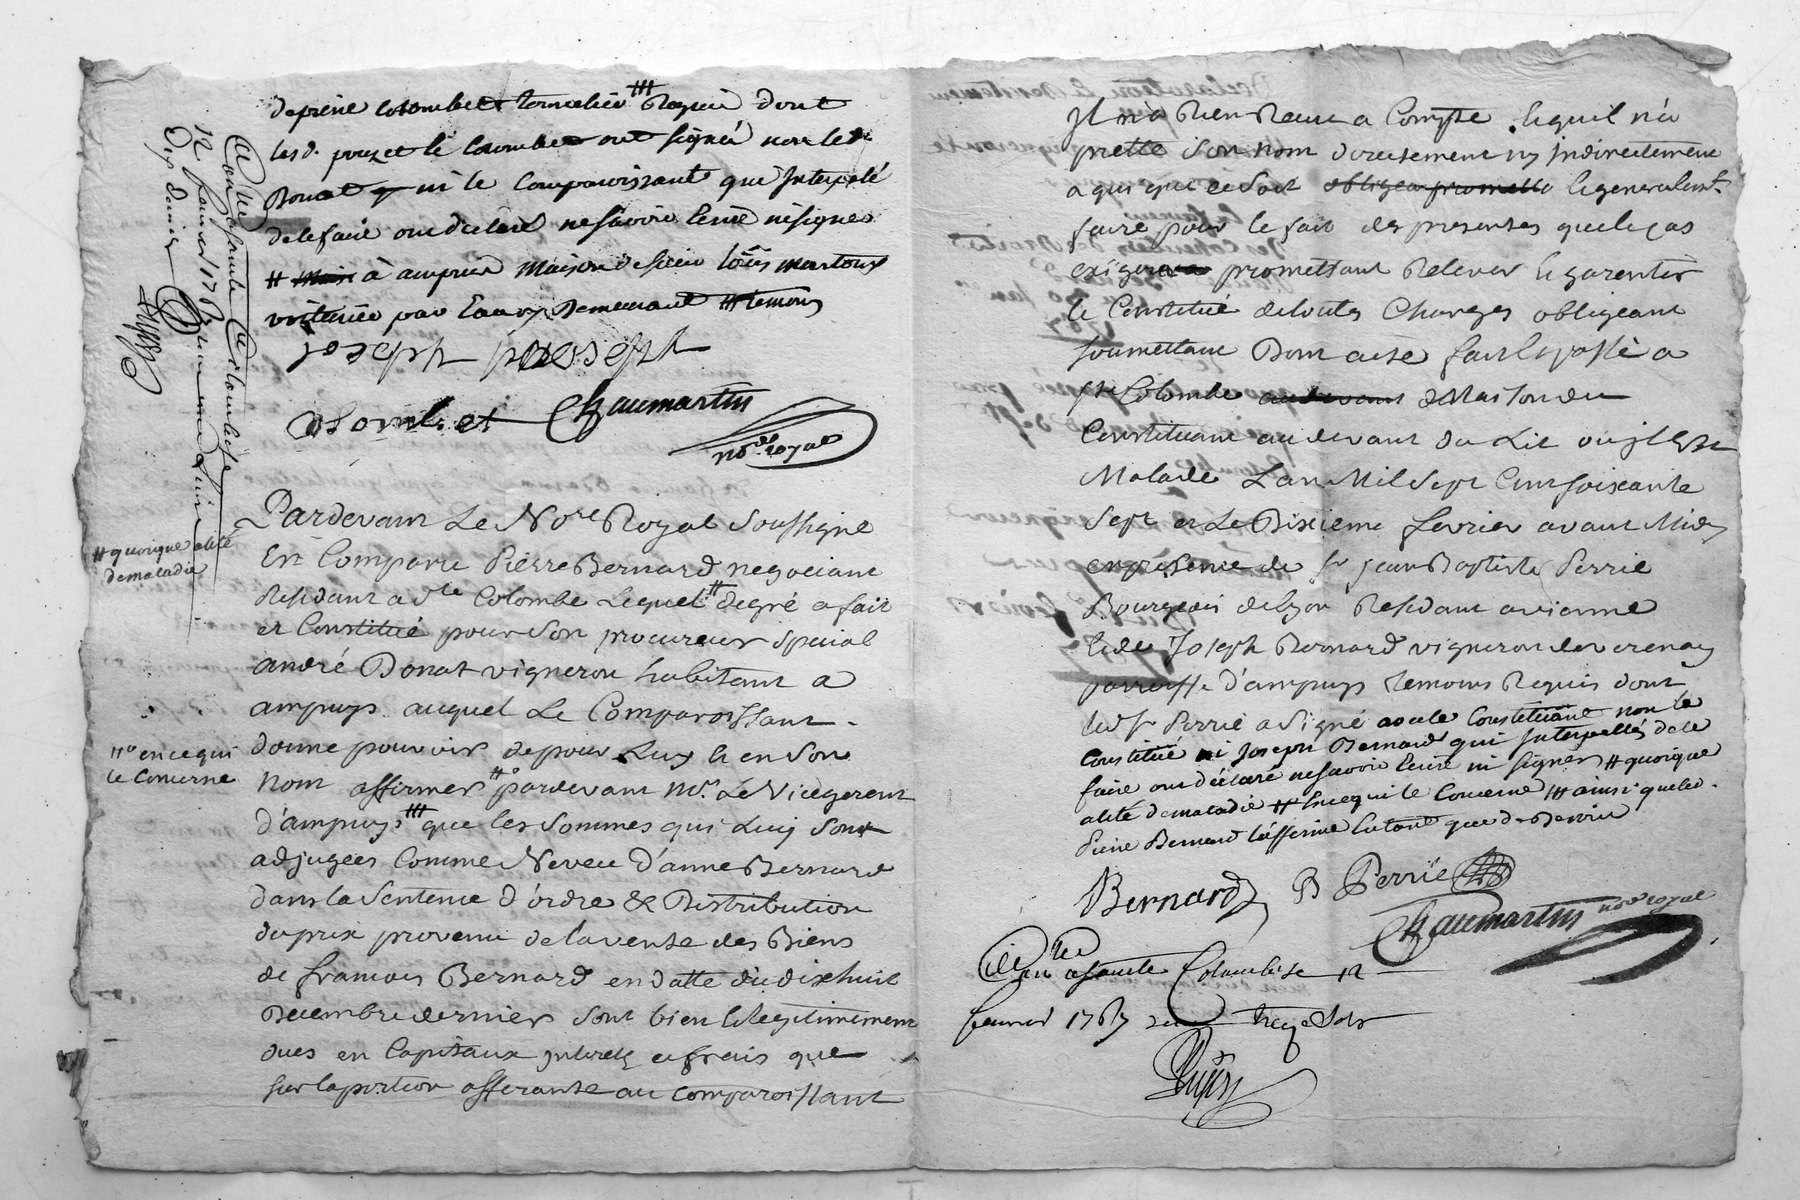 de pierre colombet tonnelier ### Requis dont
lesd. pouzet le colombet ont signé non led.
Donat ni le Comparoissant que Interpelé
delefaire ont declaré ne sçavoir lecrire ni signer
# à ampuis Maison de sieur Loüis martoux
voiturier par Eaux y Demeurant # temoins
joseph joseph
Colombet Chaumartin
nore. royal
Pardevant Le Nore Royal Soussigné
Est Comparu Pierre Bernard negociant
Residant a Ste Colombe Lequel # degré a fait
et Constitué pour Son procureur Special
andré Donat vigneron habitant a
ampuys auquel Le Comparoissant
donne pouvoir de pour Luy & en Son
Nom affirmer #° pardevant Mr. Le Vicegerent
d'ampuys ### que les Sommes qui Luy Sont
adjugées Comme Neveu D'anne Bernard
dans la Sentence d'ordre & Distribution
du prix provenu de la vente des Biens
de francois Bernard en datte du dixhuit
Decembre dernier Sont bien & legitimement
dues en Capitaux Interets et frais que
Sur la portion afferante au Comparoissant
# quoique alité
demaladie
#° en ce qui
le Concerne
Con
a Sainte Colombe le
12 fevrier 1767
Dix deniers
Il n'a Rien Reçu a Compte & quil n'a
pretté Son nom directement ny Indirectement
a qui que ce Soit & generalemt.
faire pour le fait des presentes que le cas
exigera promettant Relever & garentir
le Constitué de toutes Charges obligeant
Soumettant Dont acte fait & passé a
Ste Colombe Maison du
Constituant au devant du Lit ou il Est
Malade L'an Mil Sept Cent Soixante
Sept et Le Dixieme fevrier avant Midy
en presence de Sr jean Baptiste Perrié
Bourgeois de Lyon Residant a vienne
& de Joseph Bernard vigneron de verenay
parroisse d'ampuys temoins Requis dont
led. Sr Perrié a Signé avec le Constituant non le
Constitué ni Joseph Bernard qui Interpellés de le
faire ont déclaré ne sçavoir lecrire ni signer # quoique
alité de maladie #° En ce qui le Concerne ### ainsi que led.
Pierre Bernard l'affirme Entant que de Besoin
Bernard B Perrié
Chaumartin nore royal
a Sainte Colombe le 12
fevrier 1767 treze Sols